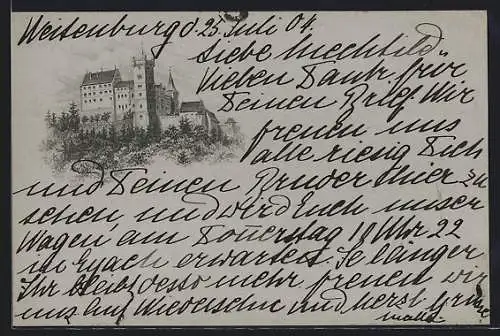 Weitenburg d. 25. Juli 04.
Liebe Mechtild.
Vielen Dank für
Deinen Brief. Wir
freuen uns
alle riesig Dich
und Deinen Bruder hier zu
sehen, und wird Euch unser
Wagen, am Donnerstag 10 Uhr 22
in Eyach erwarten. Je länger
Ihr bleibt desto mehr freuen wir
uns. Auf Wiedersehn und herzl. Grüsse